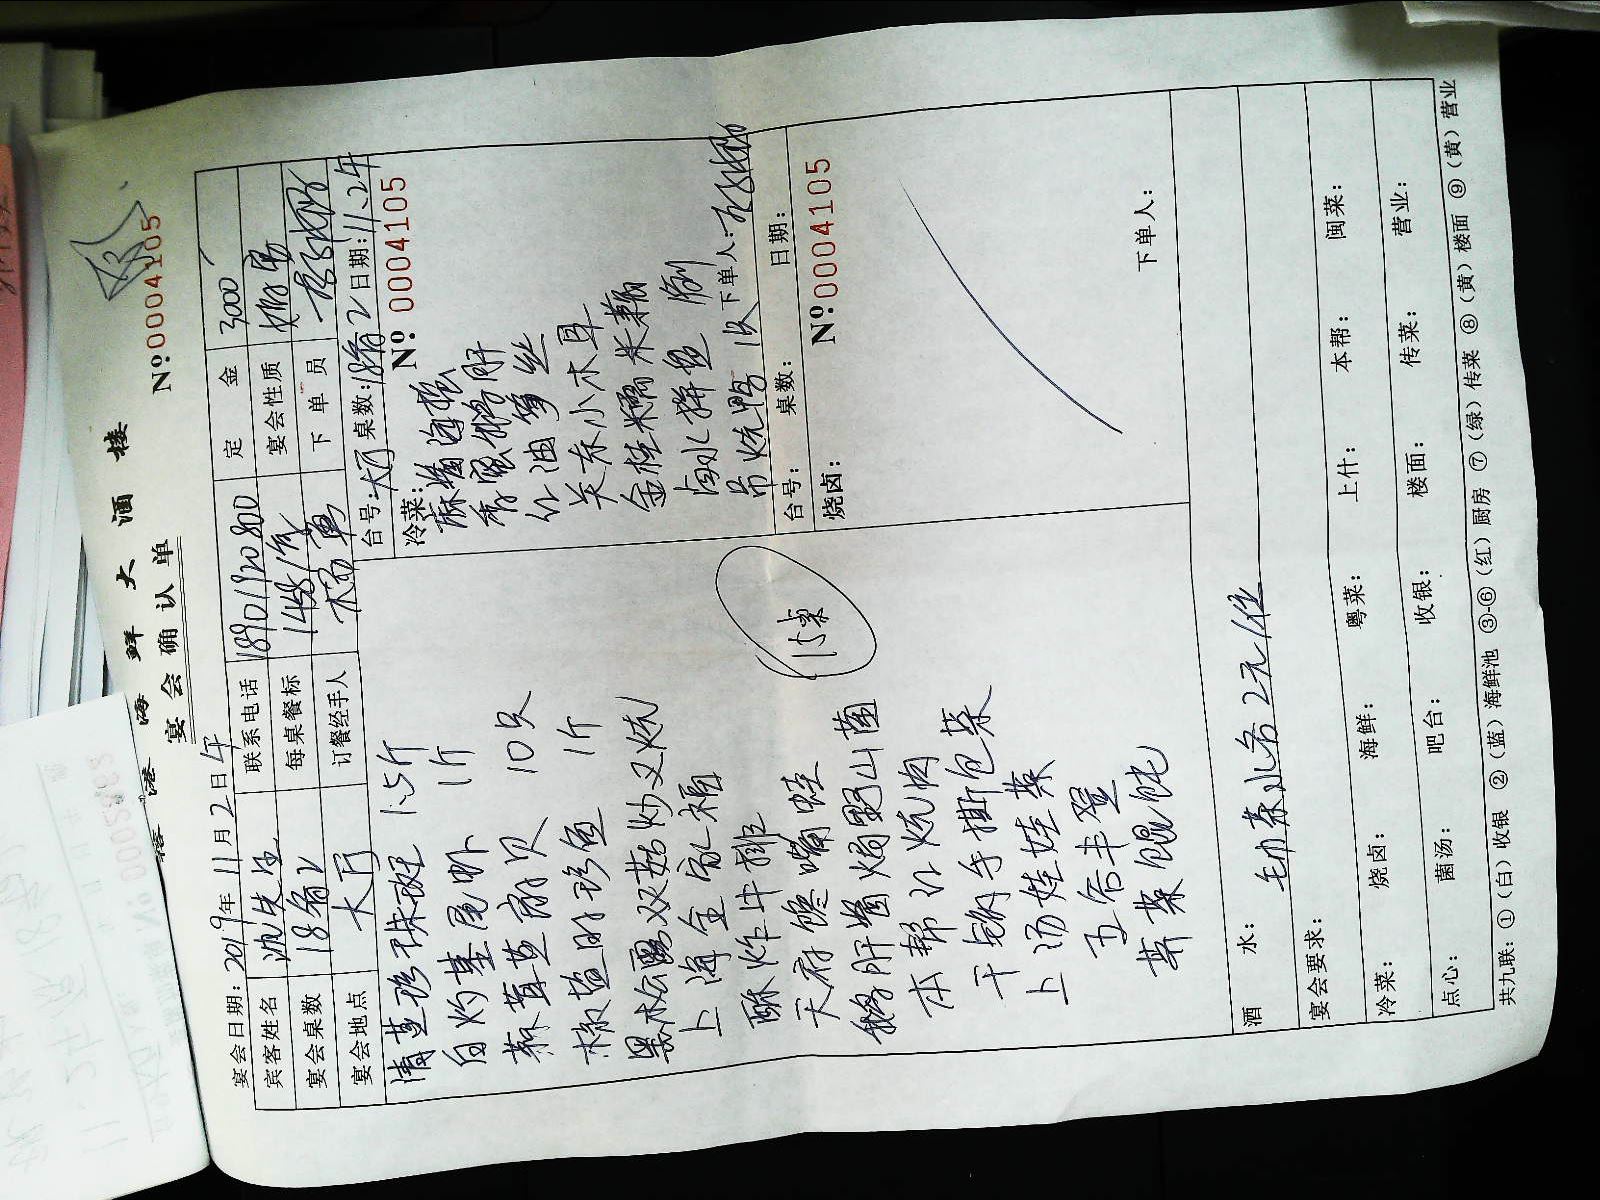 港海鲜大酒楼
宴会确认单
No:0004105
宴会日期: 2019年11月2日午
宾客姓名 沈先生 联系电话 18901920800 定金 3000
宴会桌数 18备2 每桌餐标 宴会性质 婚宴
宴会地点 大厅 订餐经手人 下单员
清蒸珍珠斑 1.5斤
白灼基尾虾 1斤
蒜茸蒸扇贝 10只
椒盐 1斤
黑松露双菇炒叉烧
上海全家福
酥炸牛排
天府馋嘴蛙
鹅肝酱焗野山菌
本帮红烧肉
干锅手撕包菜
上汤娃娃菜
五谷丰登
荠菜馄饨
15桌
台号: 大厅 桌数: 18备2 日期: 11.2午
冷菜: No: 0004105
麻酱海蜇
香 鹅肝
红油笋丝
关东小木耳
金桂糯米藕
卤水拼盘 例
吊烧鸭 1只
下单人:
台号: 桌数: 日期:
烧卤: No:0004105
下单人:
酒水: 茶水各2元/位
宴会要求:
冷菜: 烧卤: 海鲜: 粤菜: 上什: 本帮: 闽菜:
点心: 菌汤: 吧台: 收银: 楼面: 传菜: 营业:
共九联: ①(白)收银 ②(蓝)海鲜池 ③-⑥(红)厨房 ⑦(绿)传菜 ⑧(黄)楼面 ⑨(黄)营业